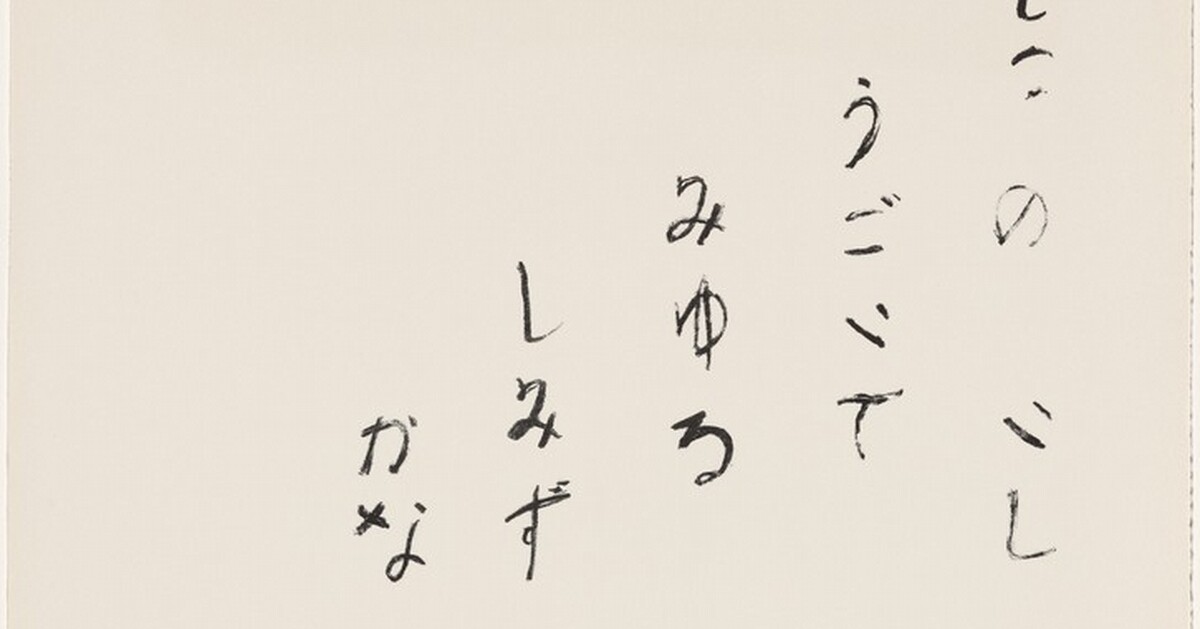 このいし
うごいて
みゆる
しみず
かな